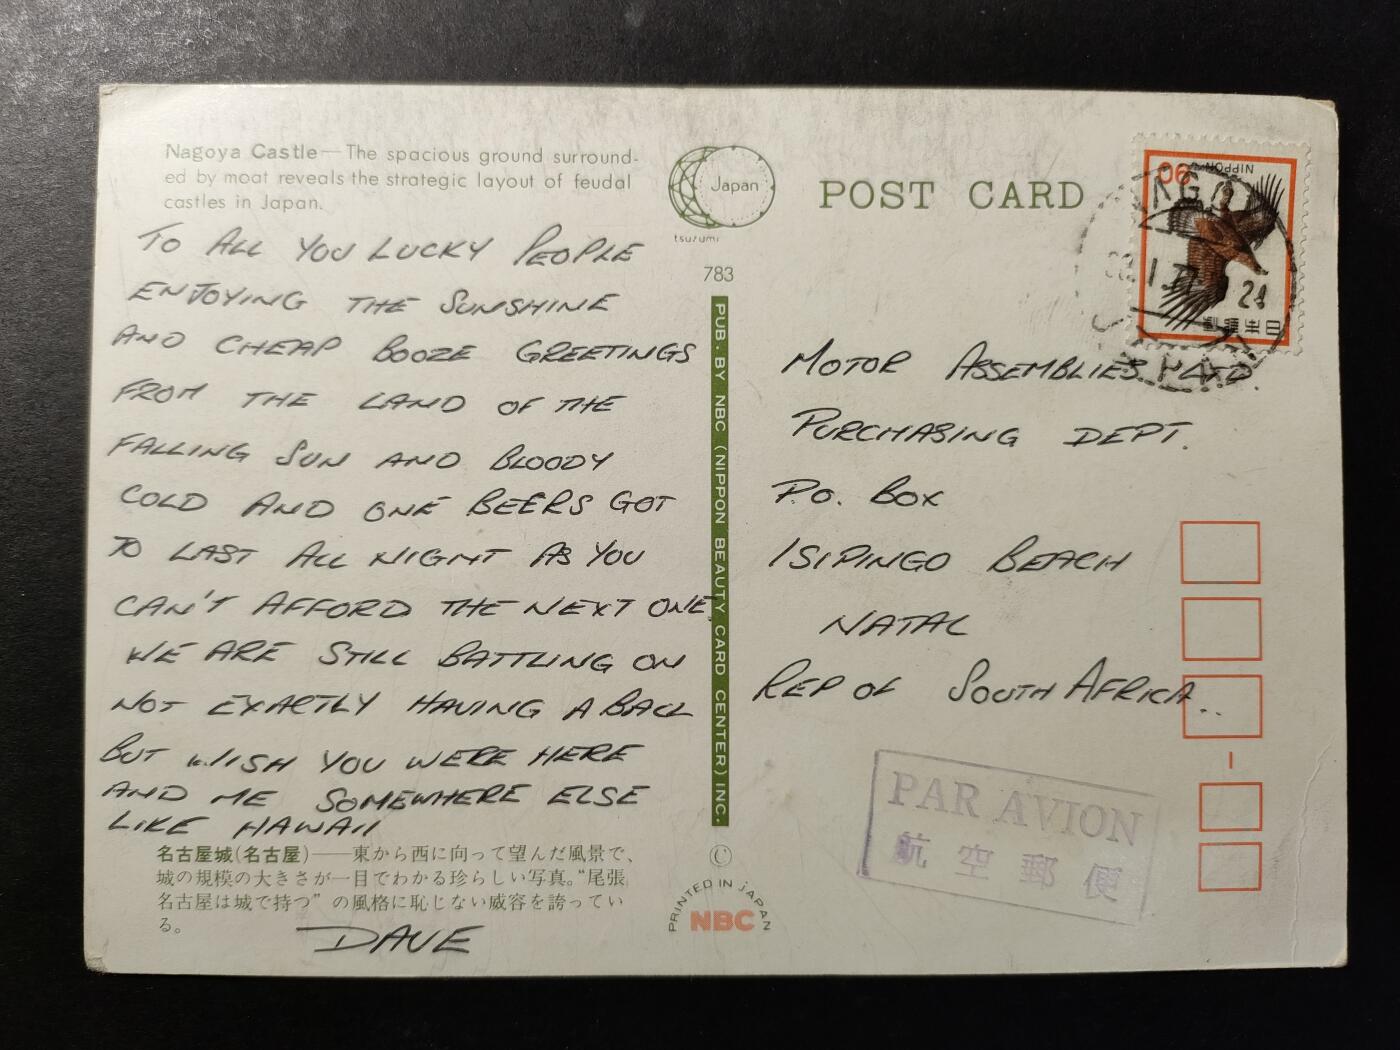 Nagoya Castle—The spacious ground surround-
ed by moat reveals the strategic layout of feudal
castles in Japan.
TO ALL YOU LUCKY PEOPLE
ENJOYING THE SUNSHINE
AND CHEAP BOOZE GREETINGS
FROM THE LAND OF THE
FALLING SUN AND BLOODY
COLD AND ONE BEERS GOT
TO LAST ALL NIGHT AS YOU
CAN'T AFFORD THE NEXT ONE,
WE ARE STILL BATTLING ON
NOT EXACTLY HAVING A BALL
BUT WISH YOU WERE HERE
AND ME SOMEWHERE ELSE
LIKE HAWAII
名古屋城(名古屋)——東から西に向って望んだ風景で、
城の規模の大きさが一目でわかる珍らしい写真。“尾張
名古屋は城で持つ”の風格に恥じない威容を誇ってい
る。
DAVE
Japan
tsuzumi
783
PUB. BY NBC (NIPPON BEAUTY CARD CENTER) INC.
©
PRINTED IN JAPAN
NBC
POST CARD
90
NIPPON
日本郵便
MOTOR ASSEMBLIES LTD.
PURCHASING DEPT.
P.O. BOX
ISIPINGO BEACH
NATAL
REP OF SOUTH AFRICA..
PAR AVION
航空郵便